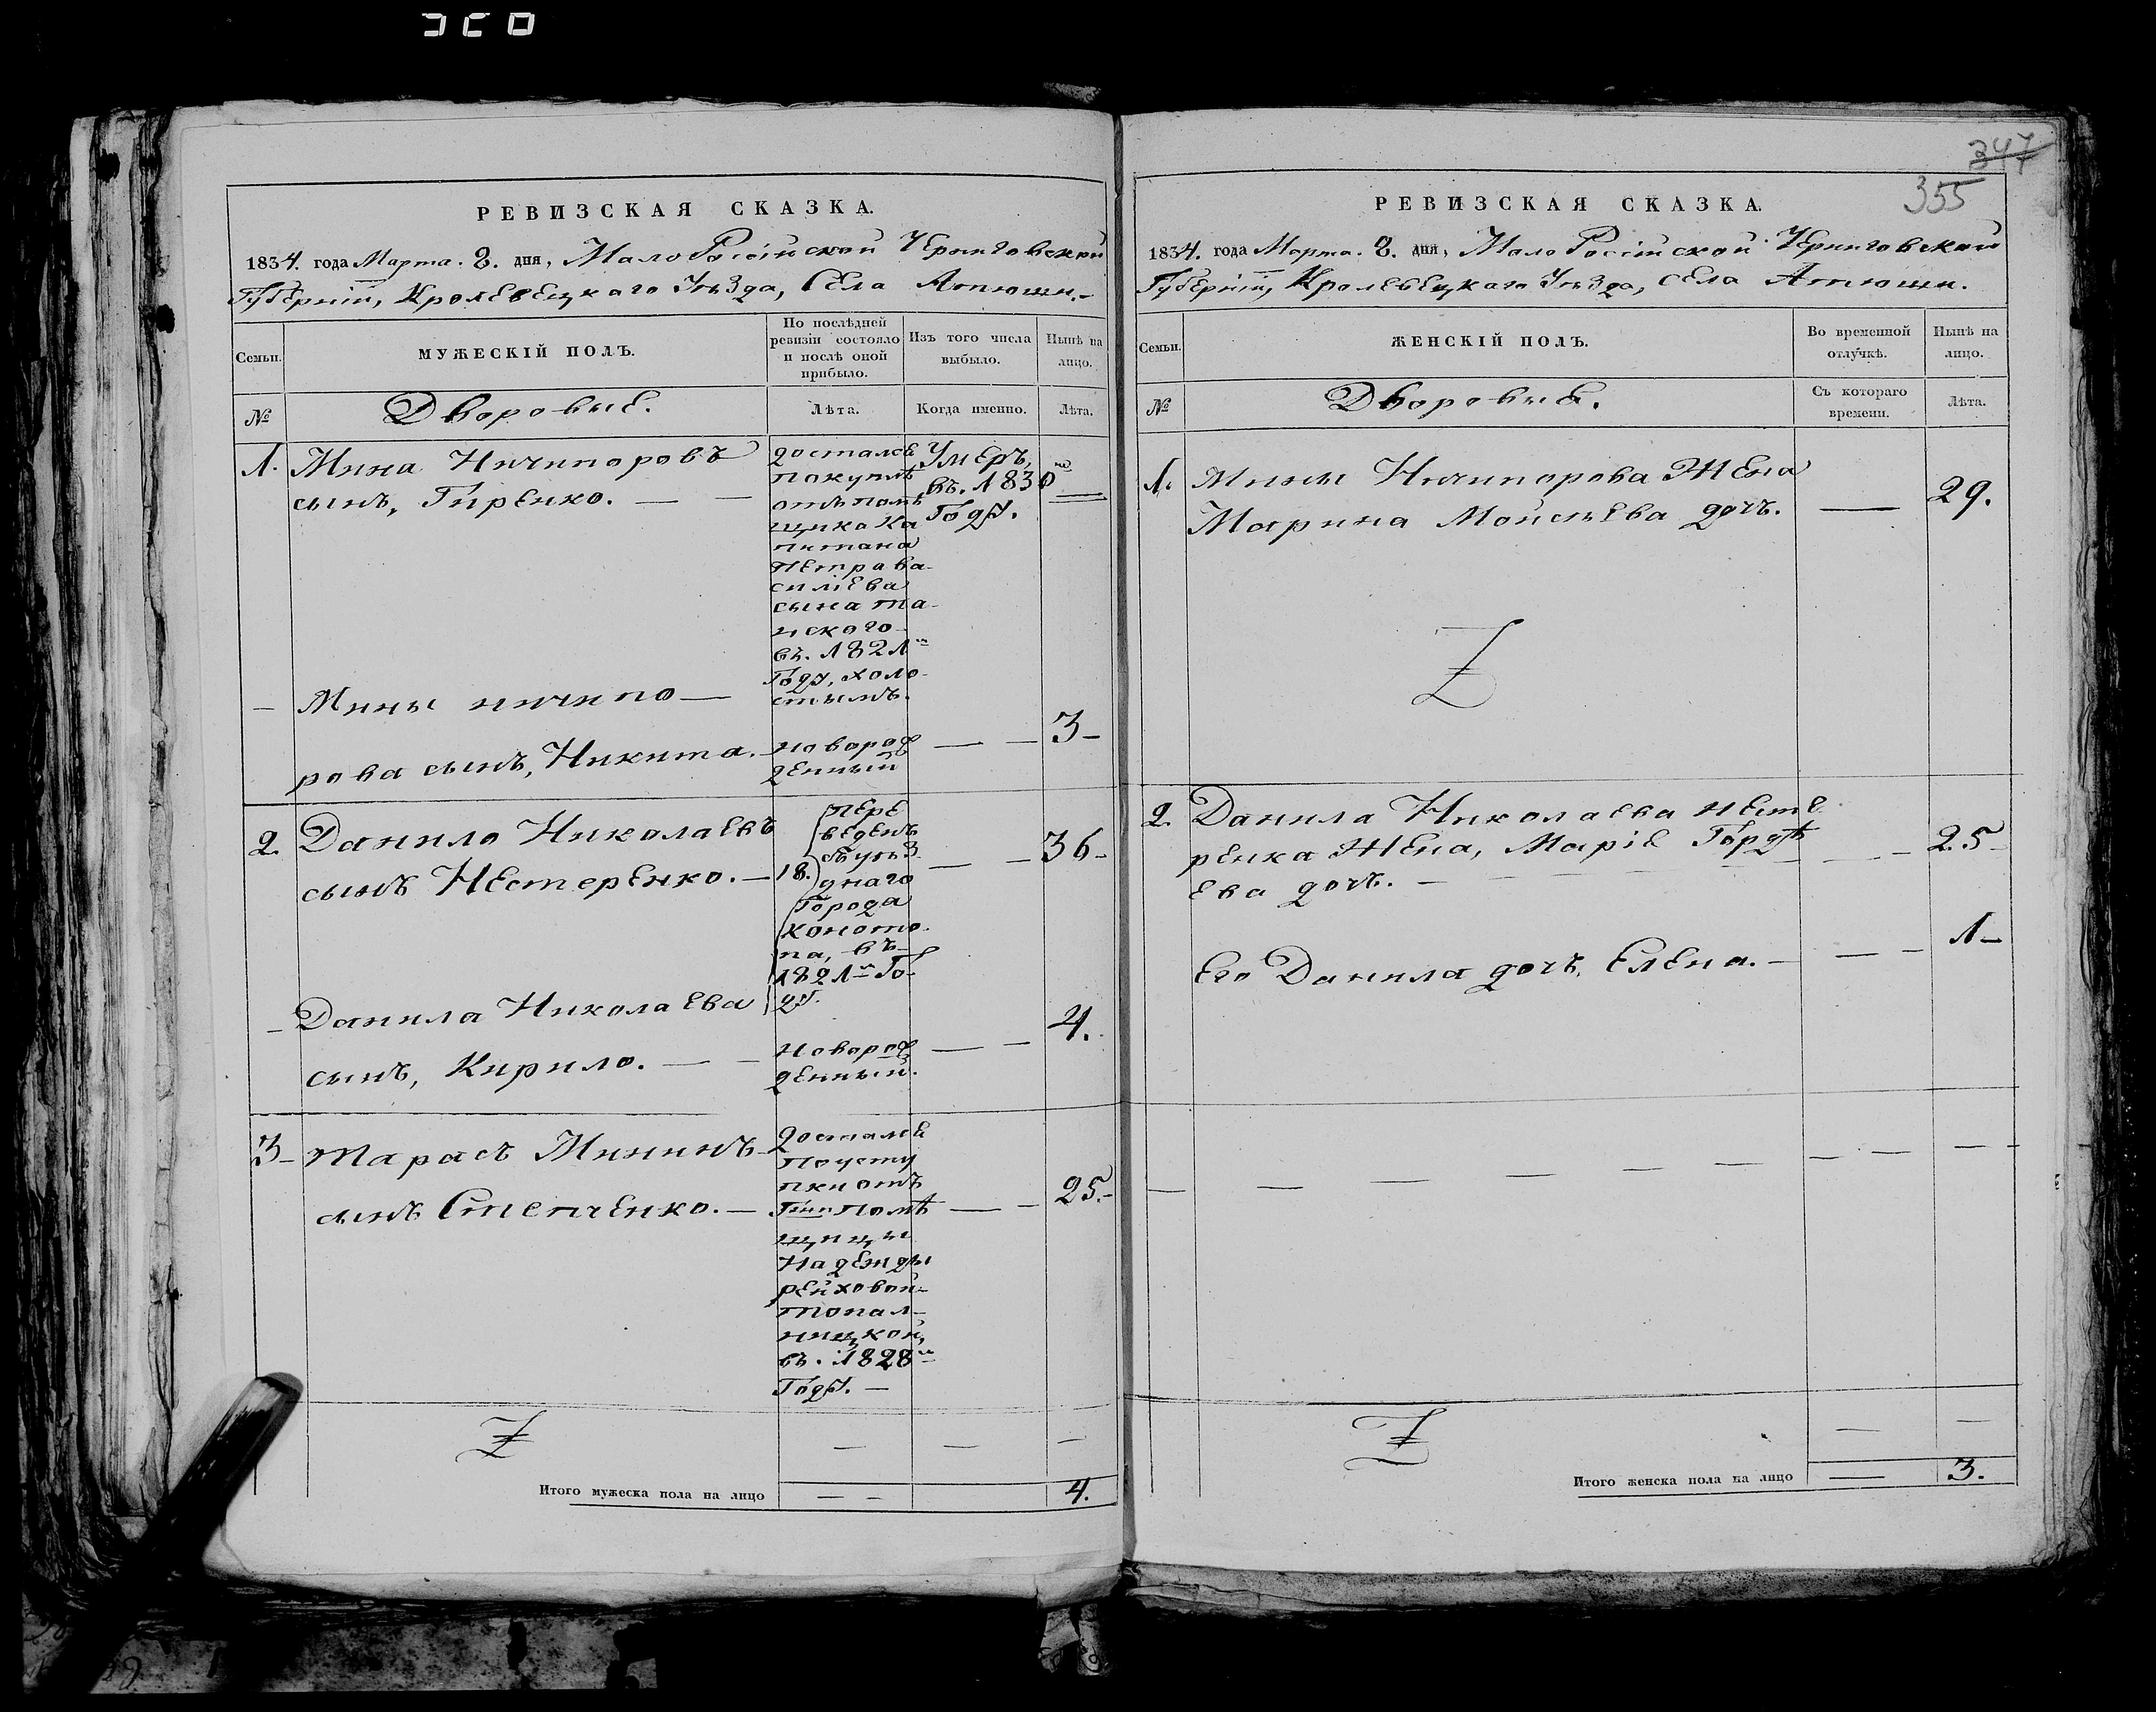 347
355
РЕВИЗСКАЯ СКАЗКА.
1834. года Марта. 8. дня, МалоРосійской Черниговской
Губерніи, Кролевецкаго Уѣзда, Села Атюши.
Семьи.
МУЖЕСКІЙ ПОЛЪ.
По послѣдней
ревизіи состояло
и послѣ оной
прибыло.
Изъ того числа
выбыло.
Нынѣ на
лицо.
№
Дворовые.
Лѣта.
Когда именно.
Лѣта.
1. Мина Ничипоровъ
сынъ, Гиренко.
досталсе
покуплѣ
отъ помѣ
щика Ка
питана
Петра Ва-
силіева
сына та-
нского
въ. 1821м
Году, холо-
стымъ.
Умеръ,
въ. 1830м
Году.
Мины ничипо-
рова сынъ, Никита.
новорож
денный
3
2. Данило Николаевъ
сынъ Нестеренко.
18.
пере
веденъ
изъ уѣз
днаго
Города
Коното-
па, въ
1821м Го-
ду.
36
Данила Николаева
сынъ, Кирило.
новорож
денный.
4.
3 Тарасъ Мининъ
сынъ Степченко.
досталсе
Поусту
пки отъ
Гжи Помѣ
щицы
Надежды
рейховой-
Топал-
ницкой,
въ. 1828м
Году.
25.
Итого мужеска пола на лицо
4.
РЕВИЗСКАЯ СКАЗКА.
1834. года Марта. 8. дня, МалоРоссійской Черниговской
Губерніи, Кролевецкаго Уѣзда, села Атюши.
Семьи.
ЖЕНСКІЙ ПОЛЪ.
Во временной
отлучкѣ.
Нынѣ на
лицо.
№
Дворовые.
Съ котораго
времени.
Лѣта.
1. Мины Ничипорова Жена
Марина Мойсѣева дочъ.
29.
2. Данила Николаева несте
ренка Жена, Маріе Гордѣ
ева дочъ.
25
Его Данила дочъ, Елена.
1
Итого женска пола на лицо
3.